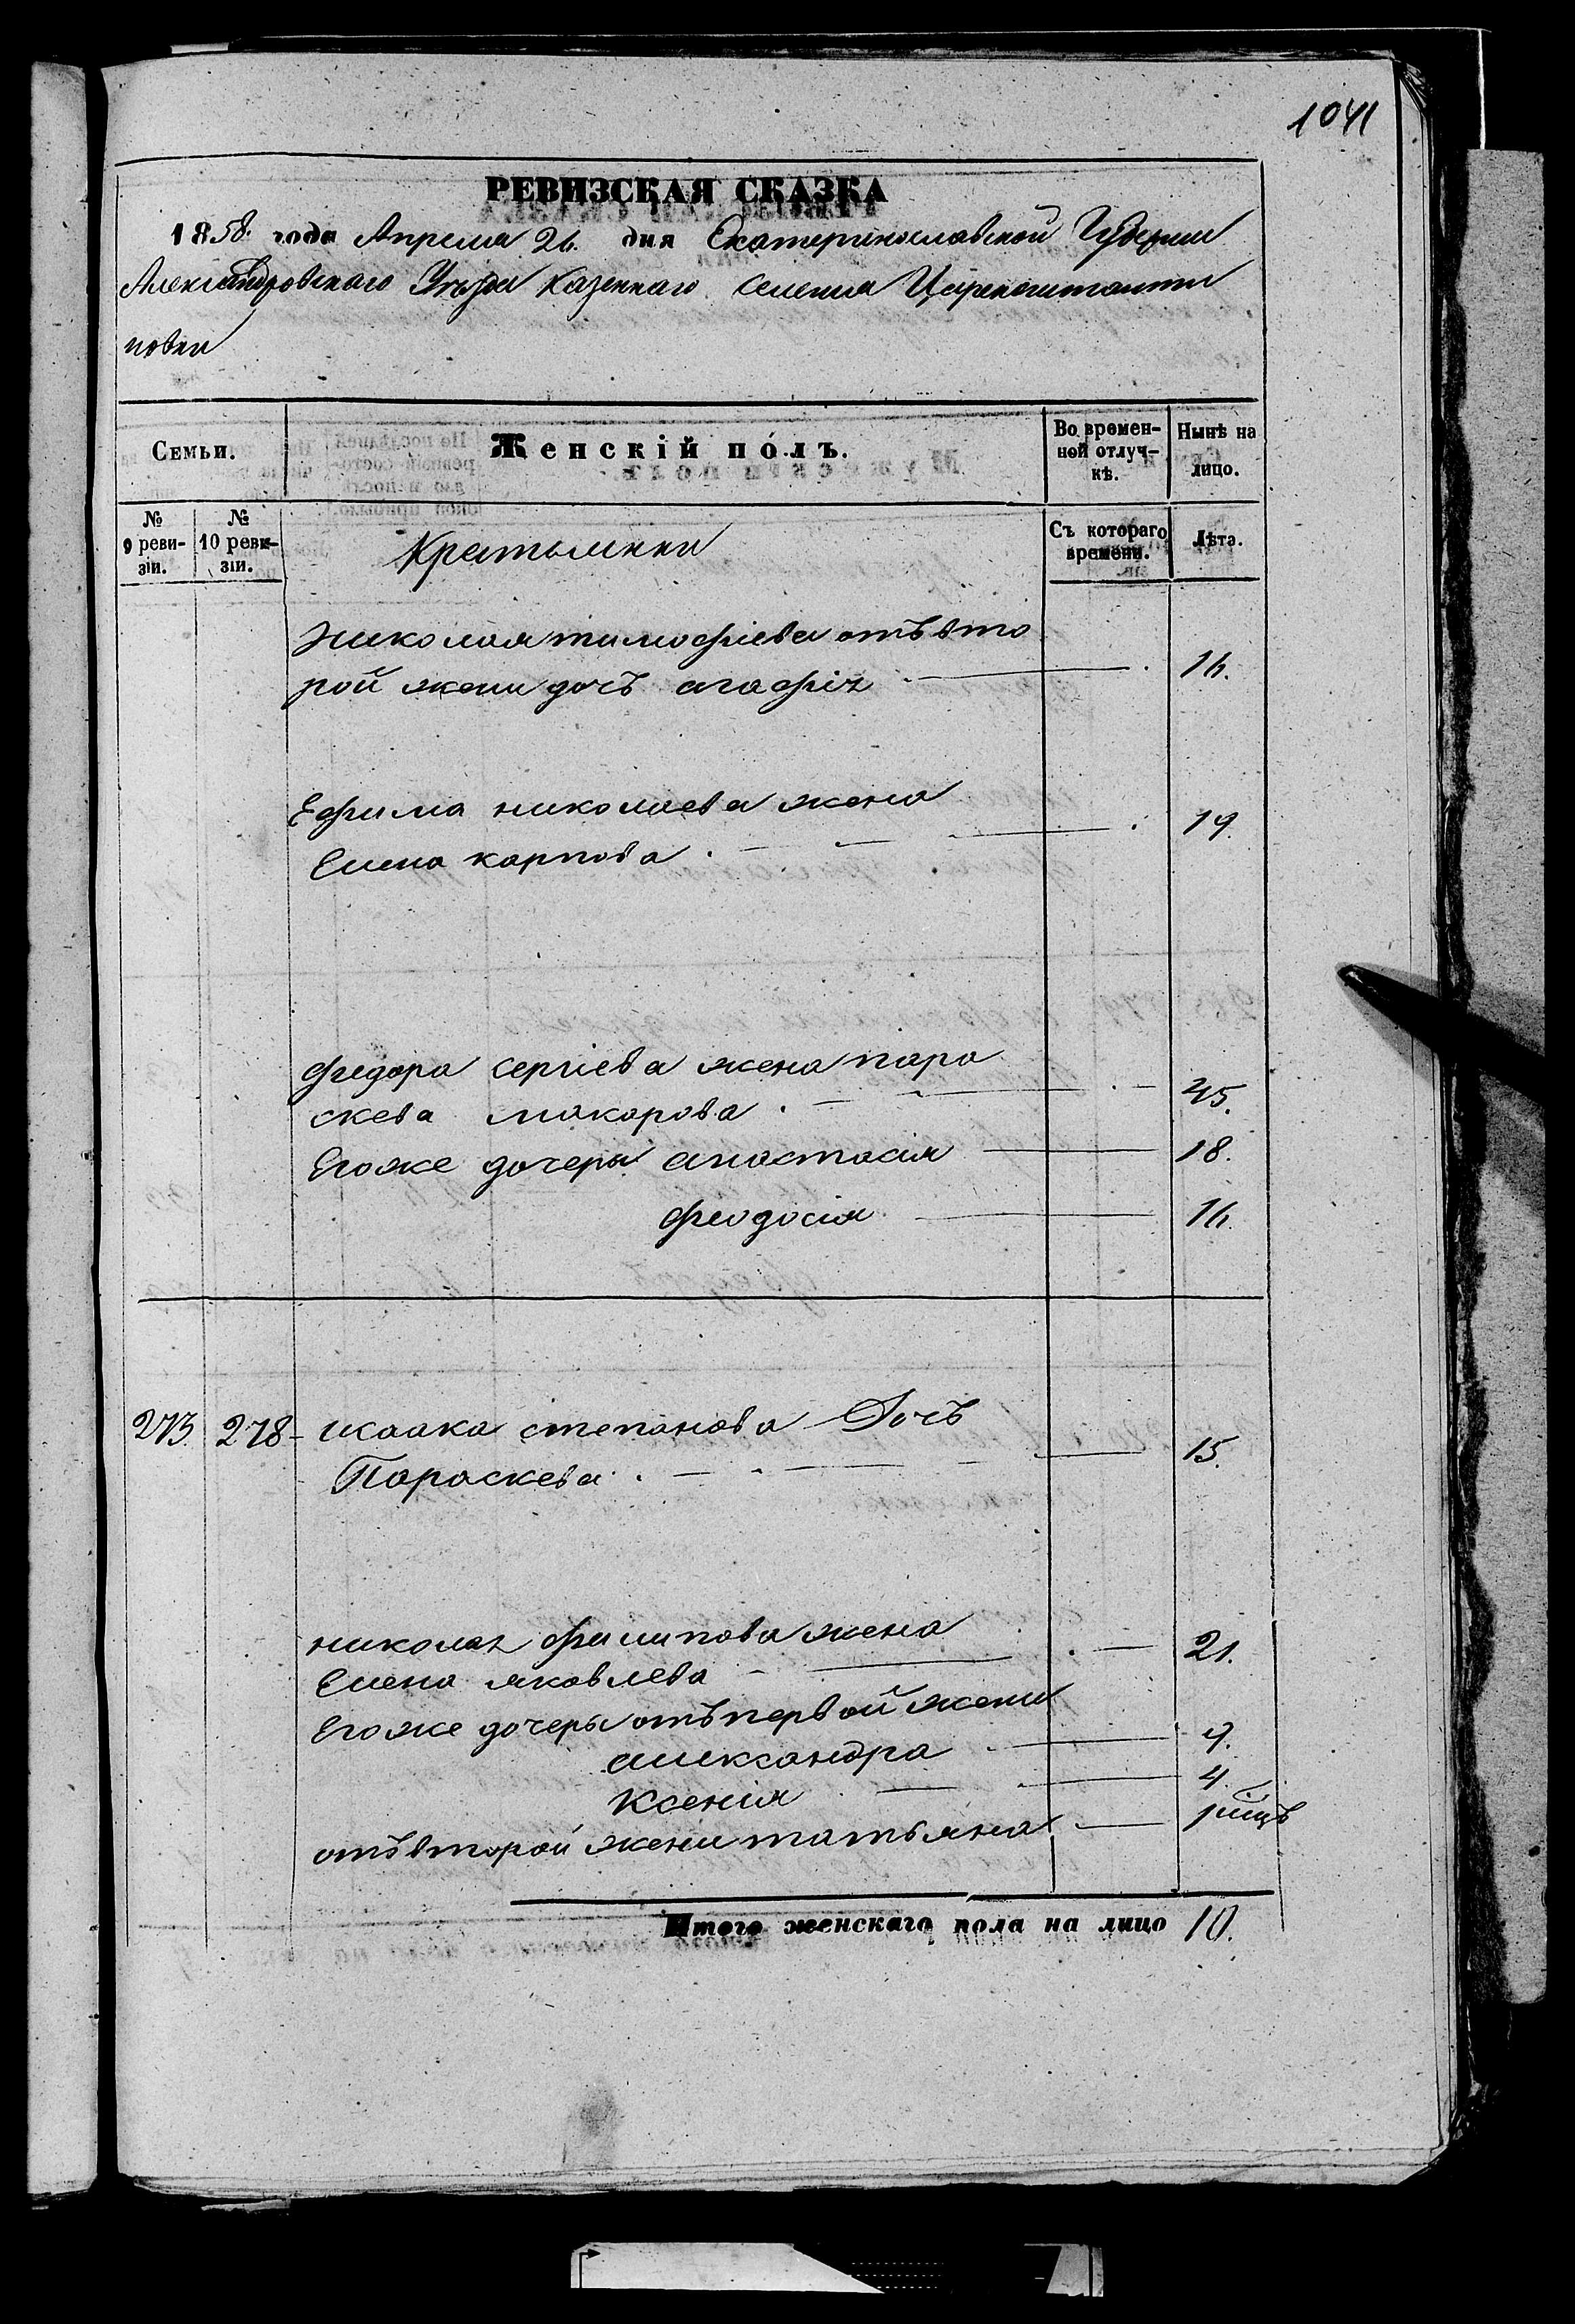 1041
РЕВИЗСКАЯ СКАЗКА
1858 года Апреля 26. дня Екатеринославской Губернии
Александровскаго Уезда Казеннаго Селения Цареконштанти
новки
Семьи.
Женскій полъ.
Во времен-
ной отлуч-
кѣ.
Нынѣ на
лицо.
№
9 реви-
зіи.
№
10 реви-
зіи.
Съ котораго
времени.
Лѣта.
Николая тимофіева отъ вто
рой жени дочъ агафія 16.
Ефима николаева жена
Елена карпова 19.
федора сергіева жена пара
скева макарова 45.
Егоже дочеры анастасія 18.
феодосія 16.
273. 278 исаака степанова Дочъ
Параскева 15.
николая филипова жена
Елена яковлева 21.
Егоже дочеры отъ первой жени
александра 9.
Ксенія 4.
отъ второй жени татьяна
Итого женскаго пола на лицо 10.